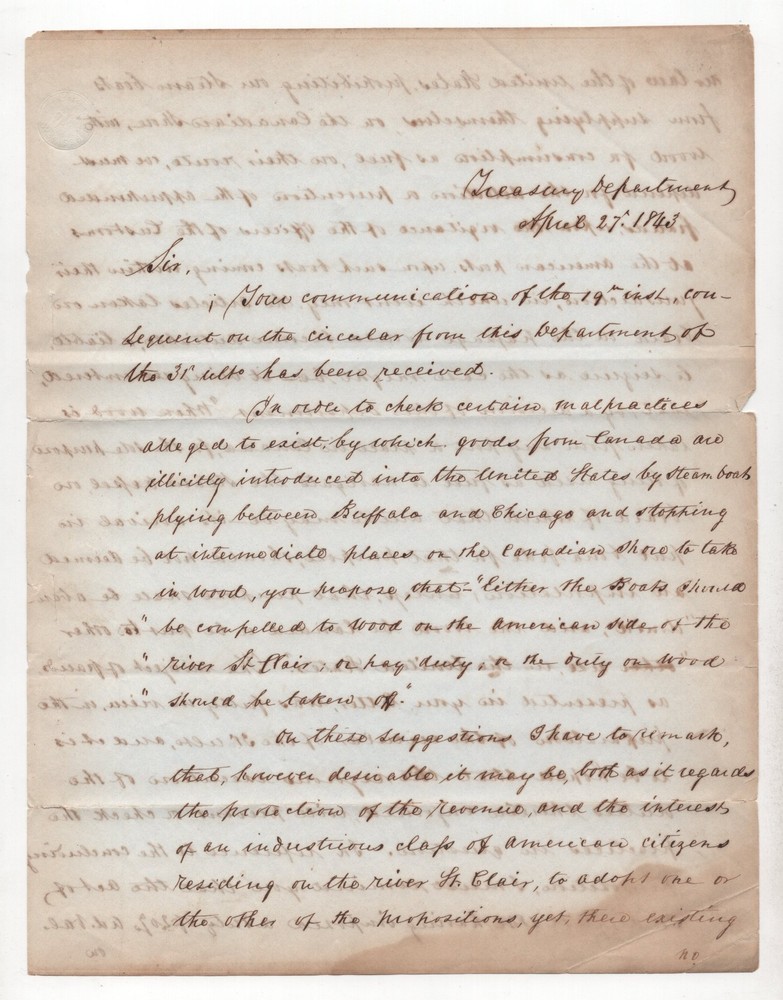 Treasury Department
April 27th. 1843
Sir,
; Your communication of the 19th inst, con-
sequent on the circular from this Department of
the 31st ulto has been received.
In order to check certain malpractices
alleged to exist, by which goods from Canada are
illicitly introduced into the United States by steam boats
plying between Buffalo and Chicago and stopping
at intermediate places on the Canadian Shore to take
in wood, you propose, that – "Either the Boats should
" be compelled to wood on the American side of the
" river St. Clair; or pay duty, or the duty on wood
" should be taken off."
On these suggestions I have to remark,
that, however desirable it may be, both as it regards
the protection of the revenue, and the interest
of an industrious class of American citizens
residing on the river St. Clair, to adopt one or
the other of the propositions, yet, there existing
no